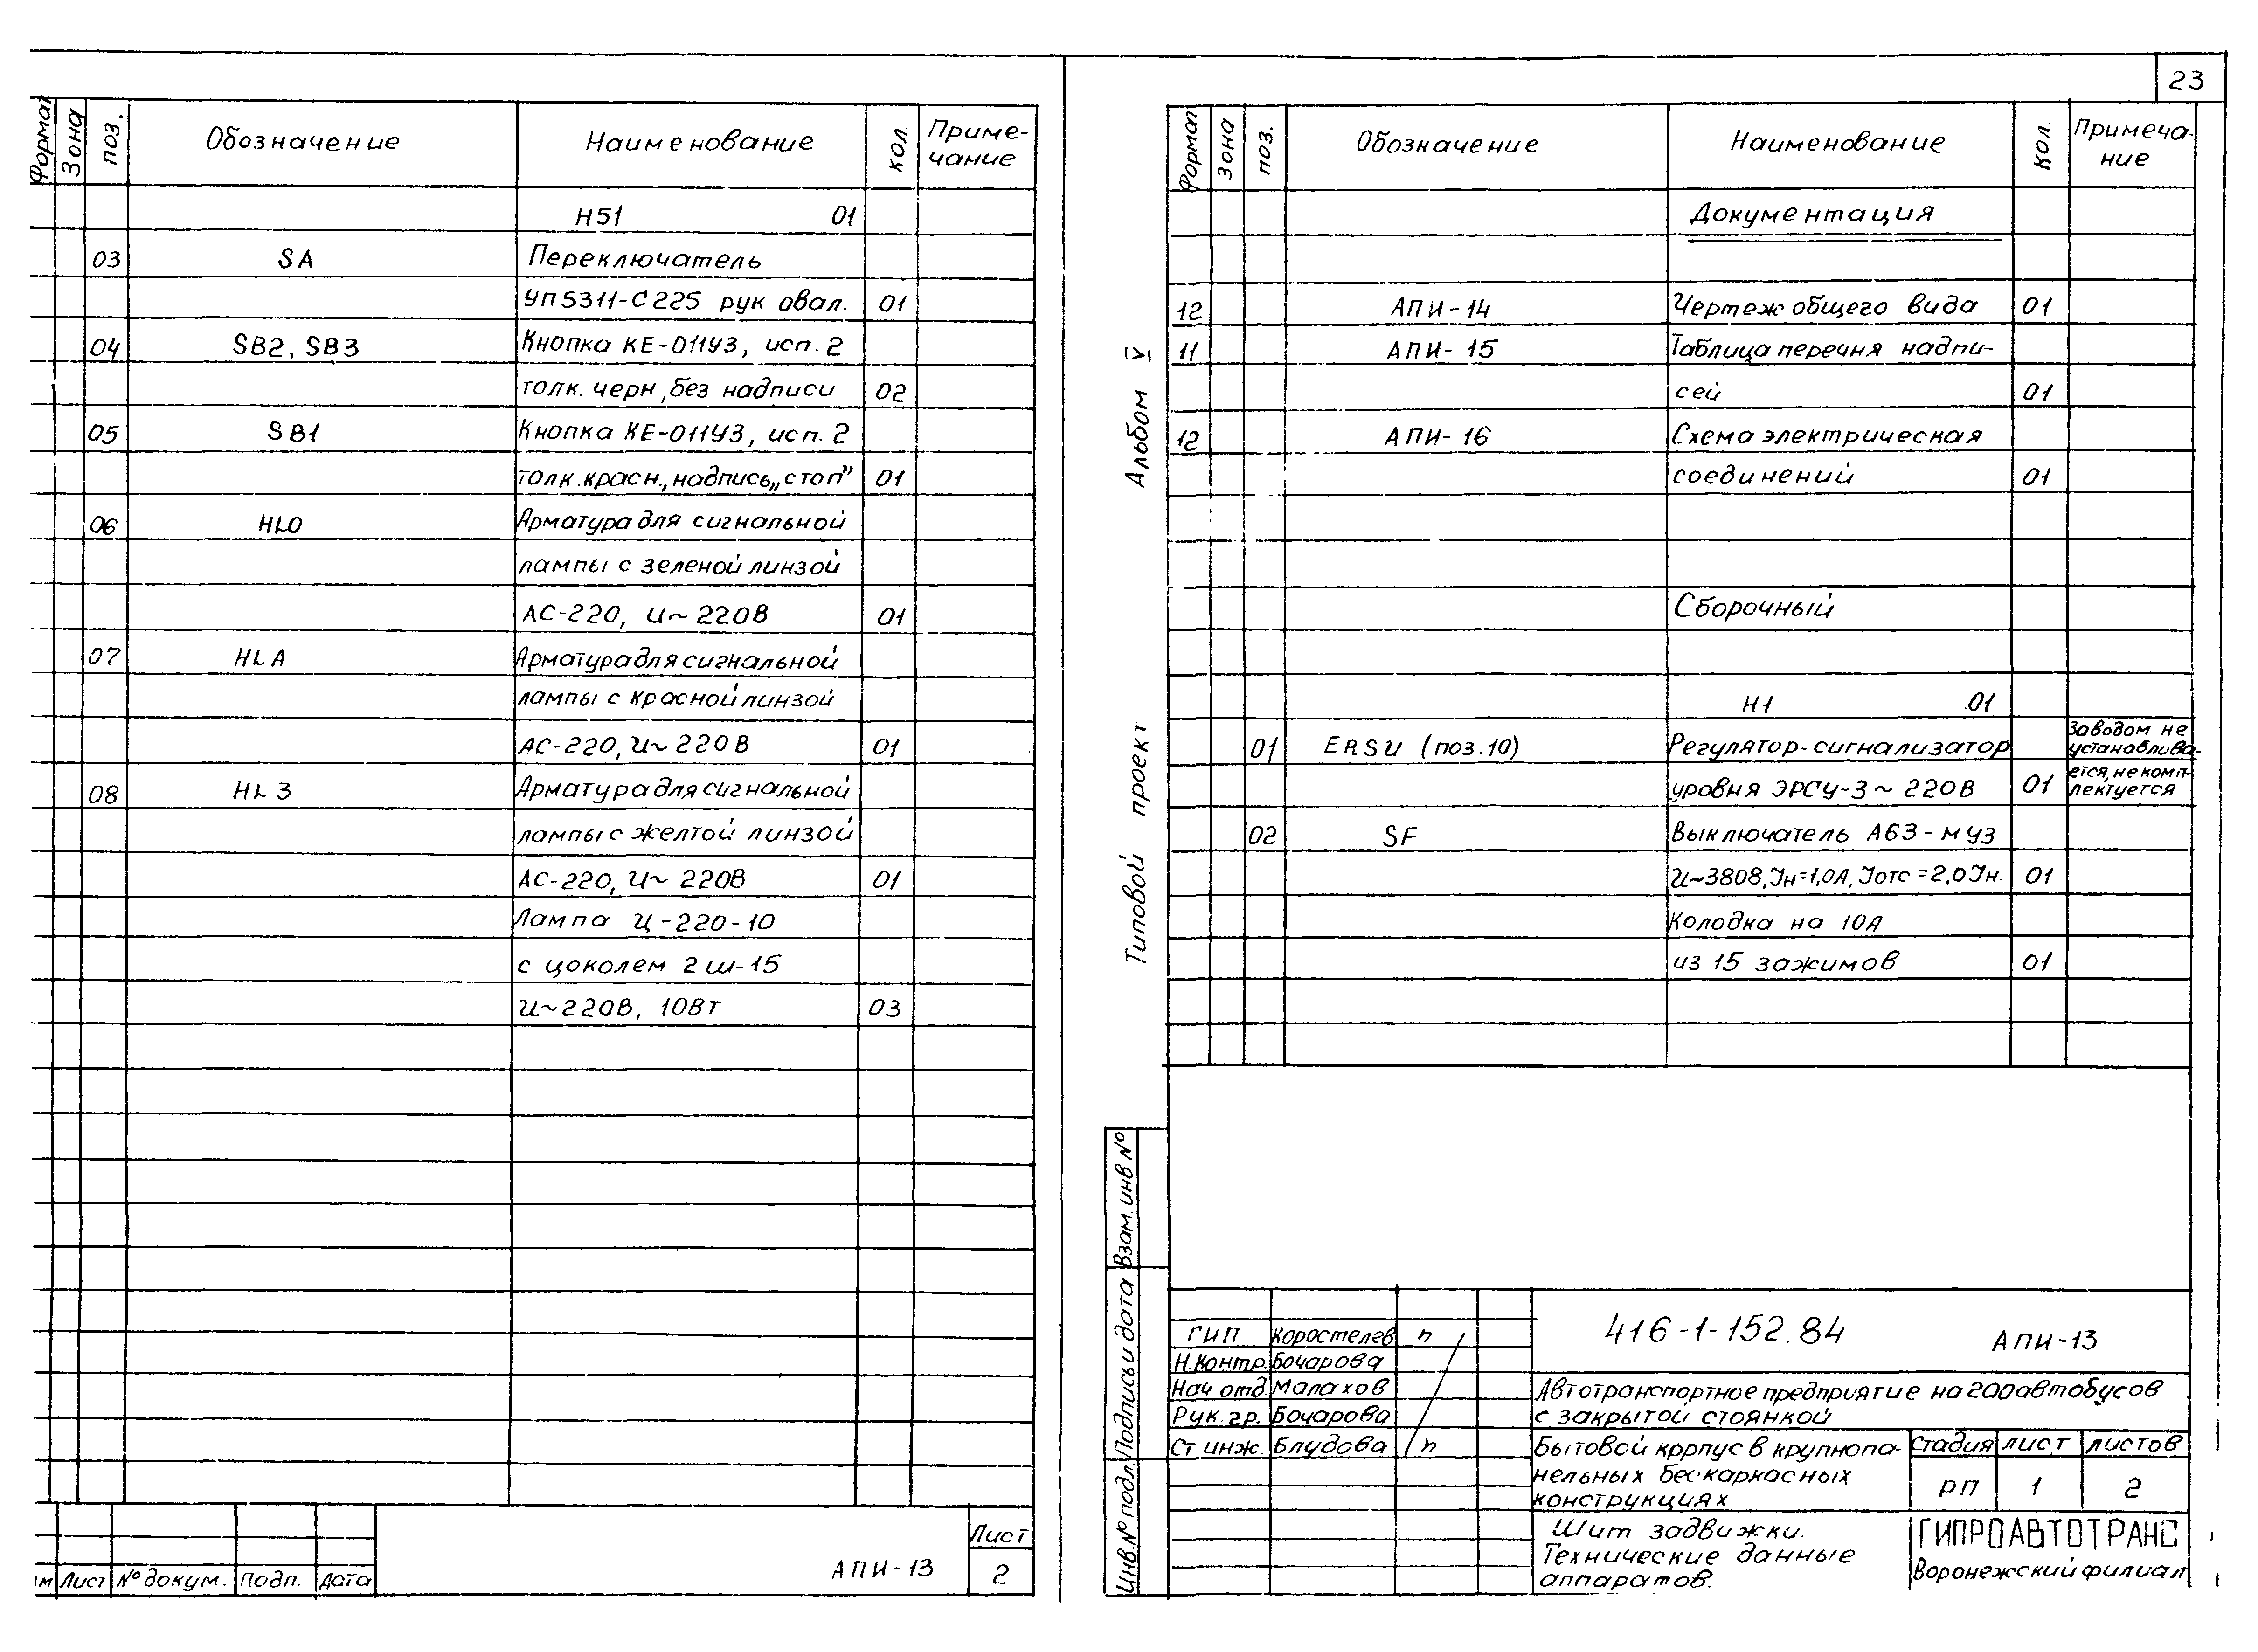 23
Формат Зона поз. Обозначение Наименование кол. Приме-
чание
Н51 01
03 SA Переключатель
УП5311-С225 рук овал. 01
04 SB2, SB3 Кнопка КЕ-011У3, исп. 2
толк. черн, без надписи 02
05 SB1 Кнопка КЕ-011У3, исп. 2
толк. красн., надпись „стоп” 01
06 HLO Арматура для сигнальной
лампы с зеленой линзой
АС-220, U~ 220В 01
07 HLA Арматура для сигнальной
лампы с красной линзой
АС-220, U~ 220В 01
08 HL3 Арматура для сигнальной
лампы с желтой линзой
АС-220, U~ 220В 01
Лампа Ц-220-10
с цоколем 2ш-15
U~220В, 10Вт 03
Лист № докум. Подп. Дата
АПИ-13
Лист
2
Альбом V
Типовой проект
Формат Зона поз. Обозначение Наименование кол. Примеча-
ние
Документация
12 АПИ-14 Чертеж общего вида 01
11 АПИ-15 Таблица перечня надпи-
сей 01
12 АПИ-16 Схема электрическая
соединений 01
Сборочный
Н1 01
01 ERSU (поз.10) Регулятор-сигнализатор
уровня ЭРСУ-3 ~ 220В 01
Заводом не
устанавлива-
ется, не комп-
лектуется
02 SF Выключатель А63-МУ3
U~380В, Iн=1,0А, Iотс=2,0Iн. 01
Колодка на 10А
из 15 зажимов 01
Взам. инв №
Подпись и дата
Инв. № подл.
ГИП Коростелев п
Н.контр. Бочарова
Нач отд. Малахов
Рук. гр. Бочарова
Ст. инж. Блудова п
416-1-152.84 АПИ-13
Автотранспортное предприятие на 200 автобусов
с закрытой стоянкой
Бытовой корпус в крупнопа-
нельных бескаркасных
конструкциях
Стадия лист листов
РП 1 2
Щит задвижки.
Технические данные
аппаратов.
ГИПРОАВТОТРАНС
Воронежский филиал